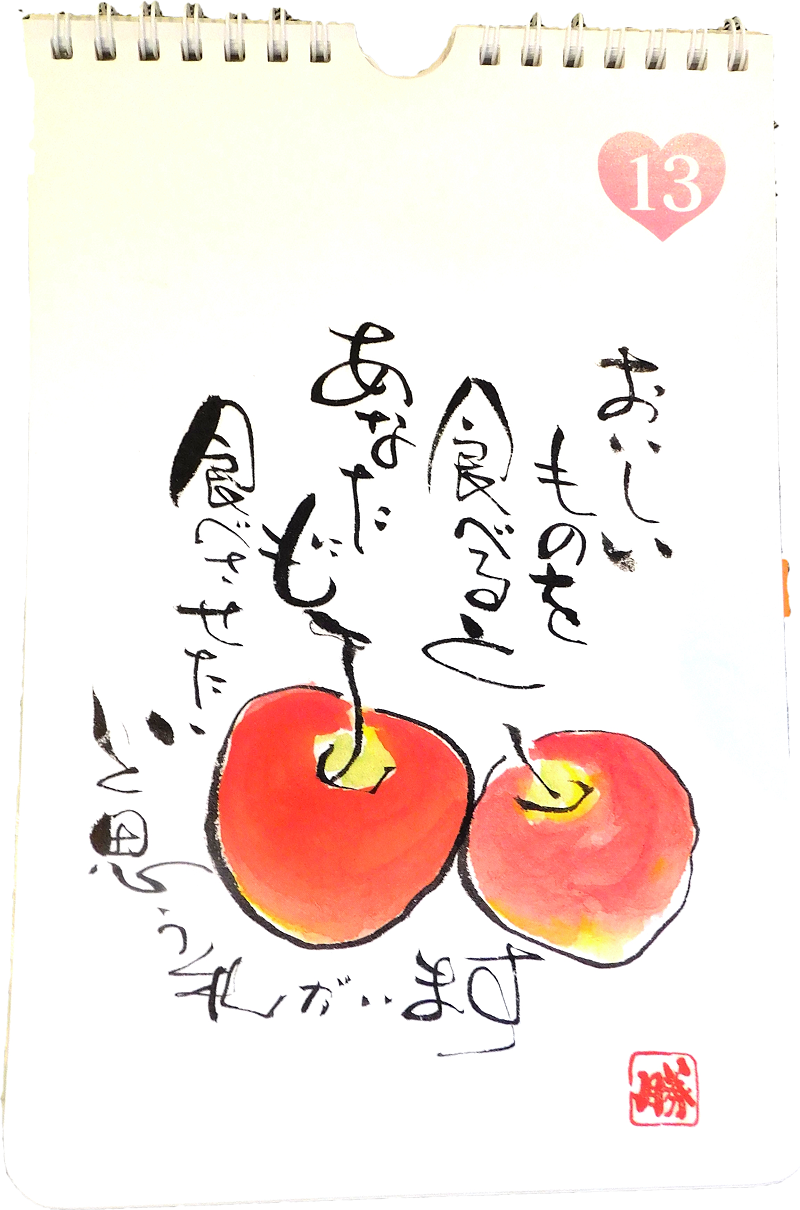 13
おいしい
ものを
食べると
あなた
にも
食べさせた
いと思う
私がいます
勝